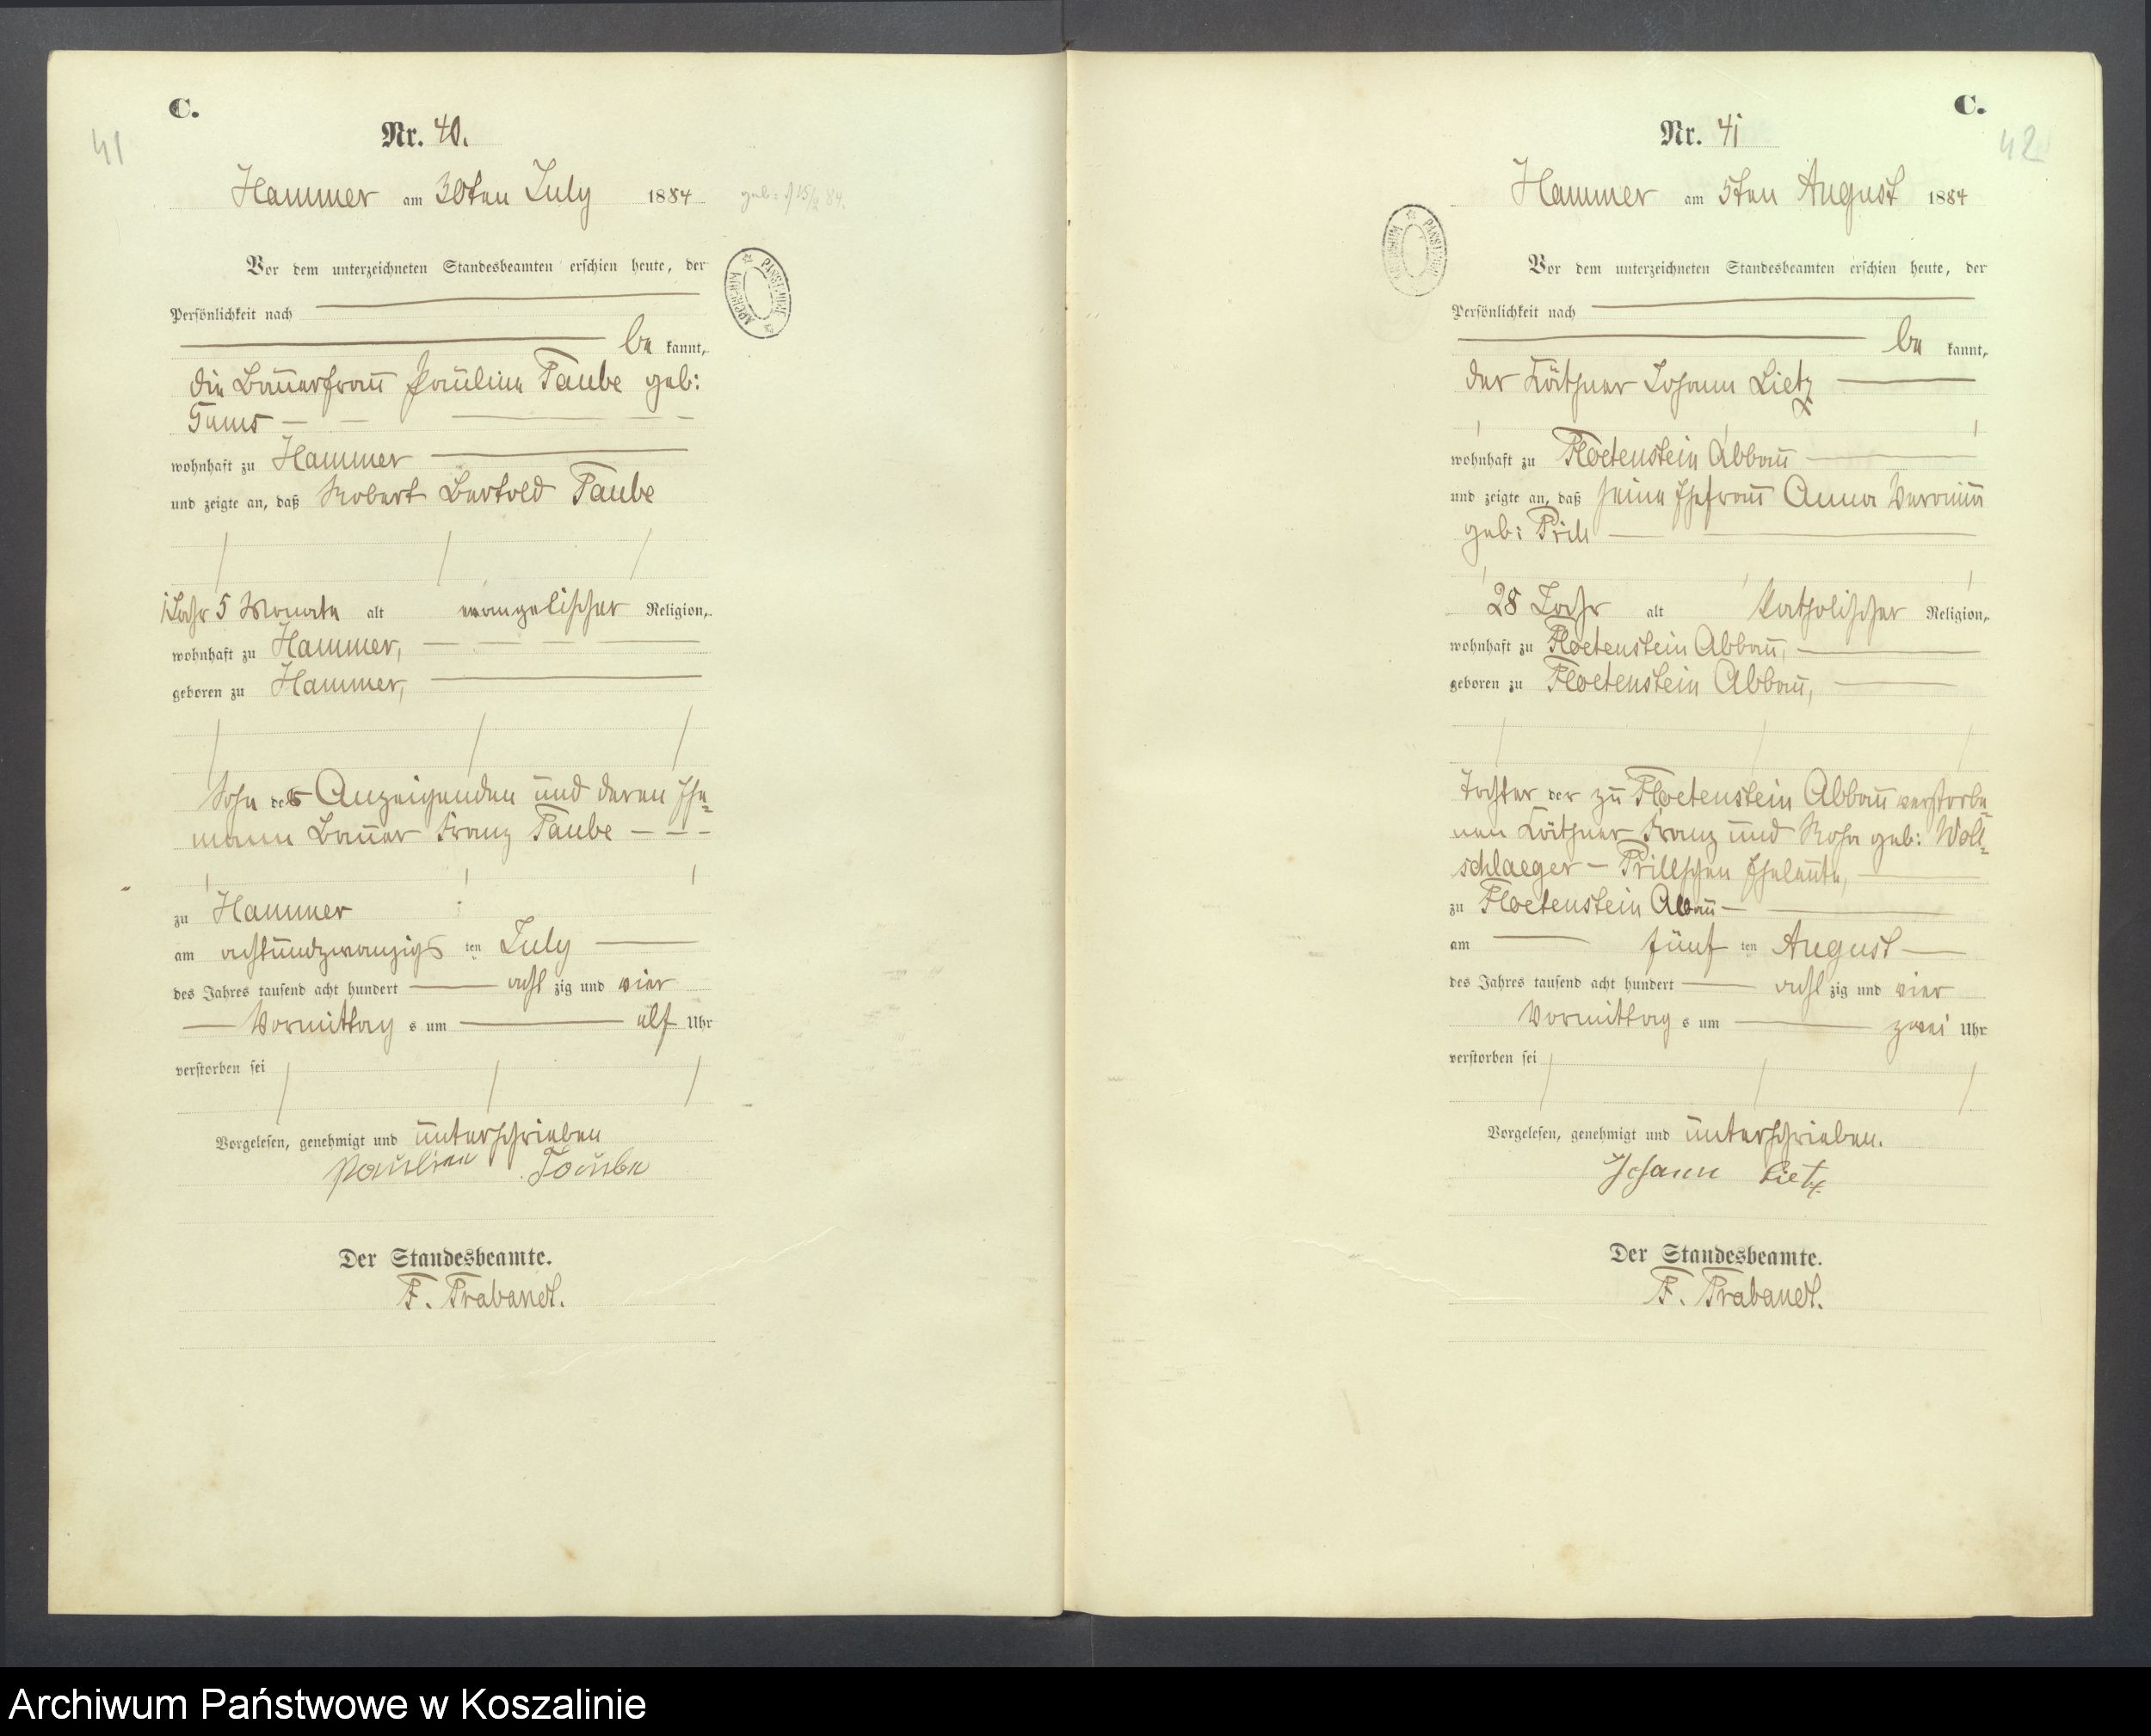 C.
41
Nr. 40.
Hammer am 30ten July 1884
geb:
Vor dem unterzeichneten Standesbeamten erschien heute, der
Persönlichkeit nach
be kannt,
die Bauerfrau Pauline Taube geb:
wohnhaft zu Hammer
und zeigte an, daß Robert Bertold Taube
1 Jahr 5 Monate alt evangelischer Religion,
wohnhaft zu Hammer,
geboren zu Hammer,
Sohn der Anzeigenden und deren Ehe=
mann Bauer Franz Taube
zu Hammer
am achtundzwanzigs ten July
des Jahres tausend acht hundert acht zig und vier
Vormittag s um elf Uhr
verstorben sei
Vorgelesen, genehmigt und unterschrieben
Pauline Taube
Der Standesbeamte.
F. Trabandt.
C.
42
Nr. 41
Hammer am 5ten August 1884
Vor dem unterzeichneten Standesbeamten erschien heute, der
Persönlichkeit nach
be kannt,
der Käthner Johann Lietz
wohnhaft zu Floetenstein Abbau
und zeigte an, daß seine Ehefrau Anna Veronika
geb: Prill
28 Jahr alt katholischer Religion,
wohnhaft zu Floetenstein Abbau,
geboren zu Floetenstein Abbau,
Tochter der zu Floetenstein Abbau verstorbe=
nen Käthner Franz und Rosa geb: Woll=
schlaeger - Prillschen Eheleute,
zu Floetenstein Abbau
am fünf ten August
des Jahres tausend acht hundert acht zig und vier
Vormittag s um zwei Uhr
verstorben sei
Vorgelesen, genehmigt und unterschrieben.
Johann Lietz
Der Standesbeamte.
F. Trabandt.
Archiwum Państwowe w Koszalinie